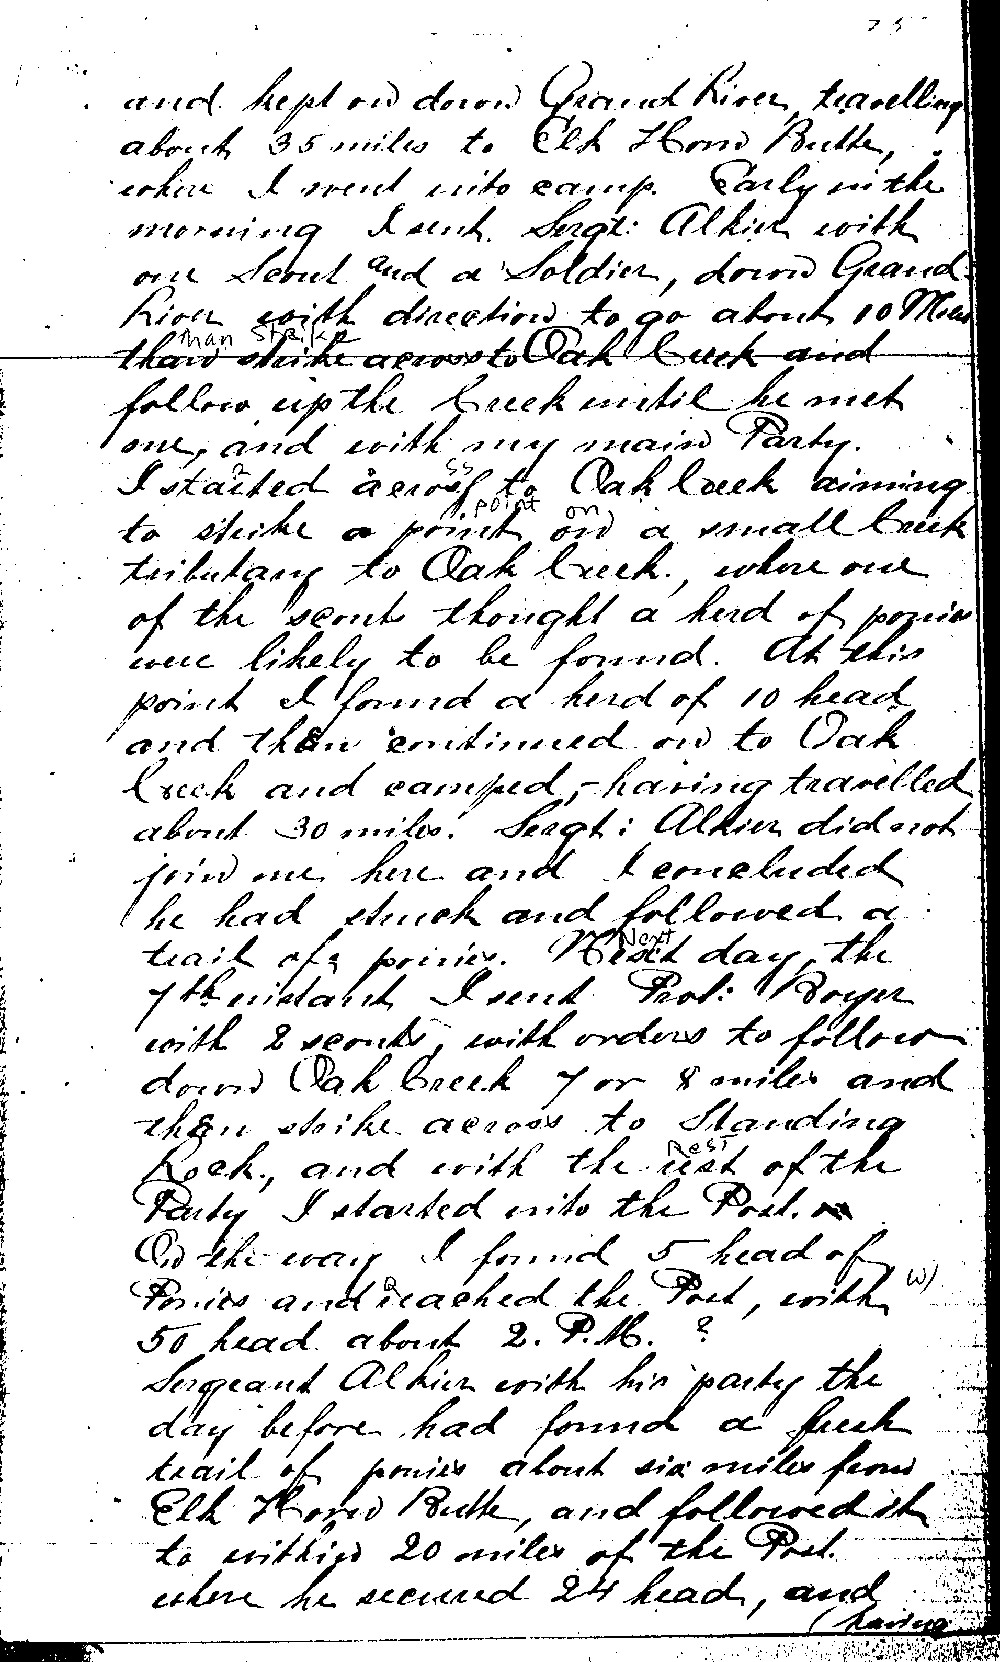 75
and kept on down Grand River, travelling
about 35 miles to Elk Horn Butte,
where I went into camp. Early in the
morning I sent Sergt: Alkier with
one Scout and a Soldier, down Grand
River with direction to go about 10 Miles
than strike
than strike across to Oak Creek and
follow up the Creek until he met
me, and with my main Party.
I started across to Oak Creek aiming
point on
to strike a point on a small Creek
tributary to Oak Creek, where one
of the scouts thought a herd of ponies
were likely to be found. At this
point I found a herd of 10 head
and then continued on to Oak
Creek and camped, - having travelled
about 30 miles. Sergt: Alkier did not
join me here and I concluded
he had struck and followed a
Next
trail of ponies. Next day, the
7th instant I sent Prvt: Boyer
with 2 scouts, with orders to follow
down Oak Creek 7 or 8 miles and
then strike across to Standing
rest
Rock, and with the rest of the
Party I started into the Post.
On the way I found 5 head of
Ponies and reached the Post, with (w)
50 head about 2. P.M. ?
Sergeant Alkier with his party the
day before had found a fresh
trail of ponies about six miles from
Elk Horn Butte, and followed it
to within 20 miles of the Post.
where he secured 24 head, and
(having